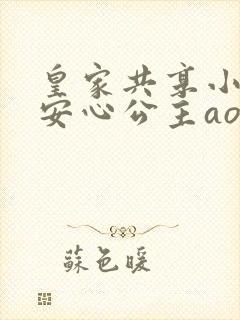 皇家共享小
安心公主ao
蘇色暖